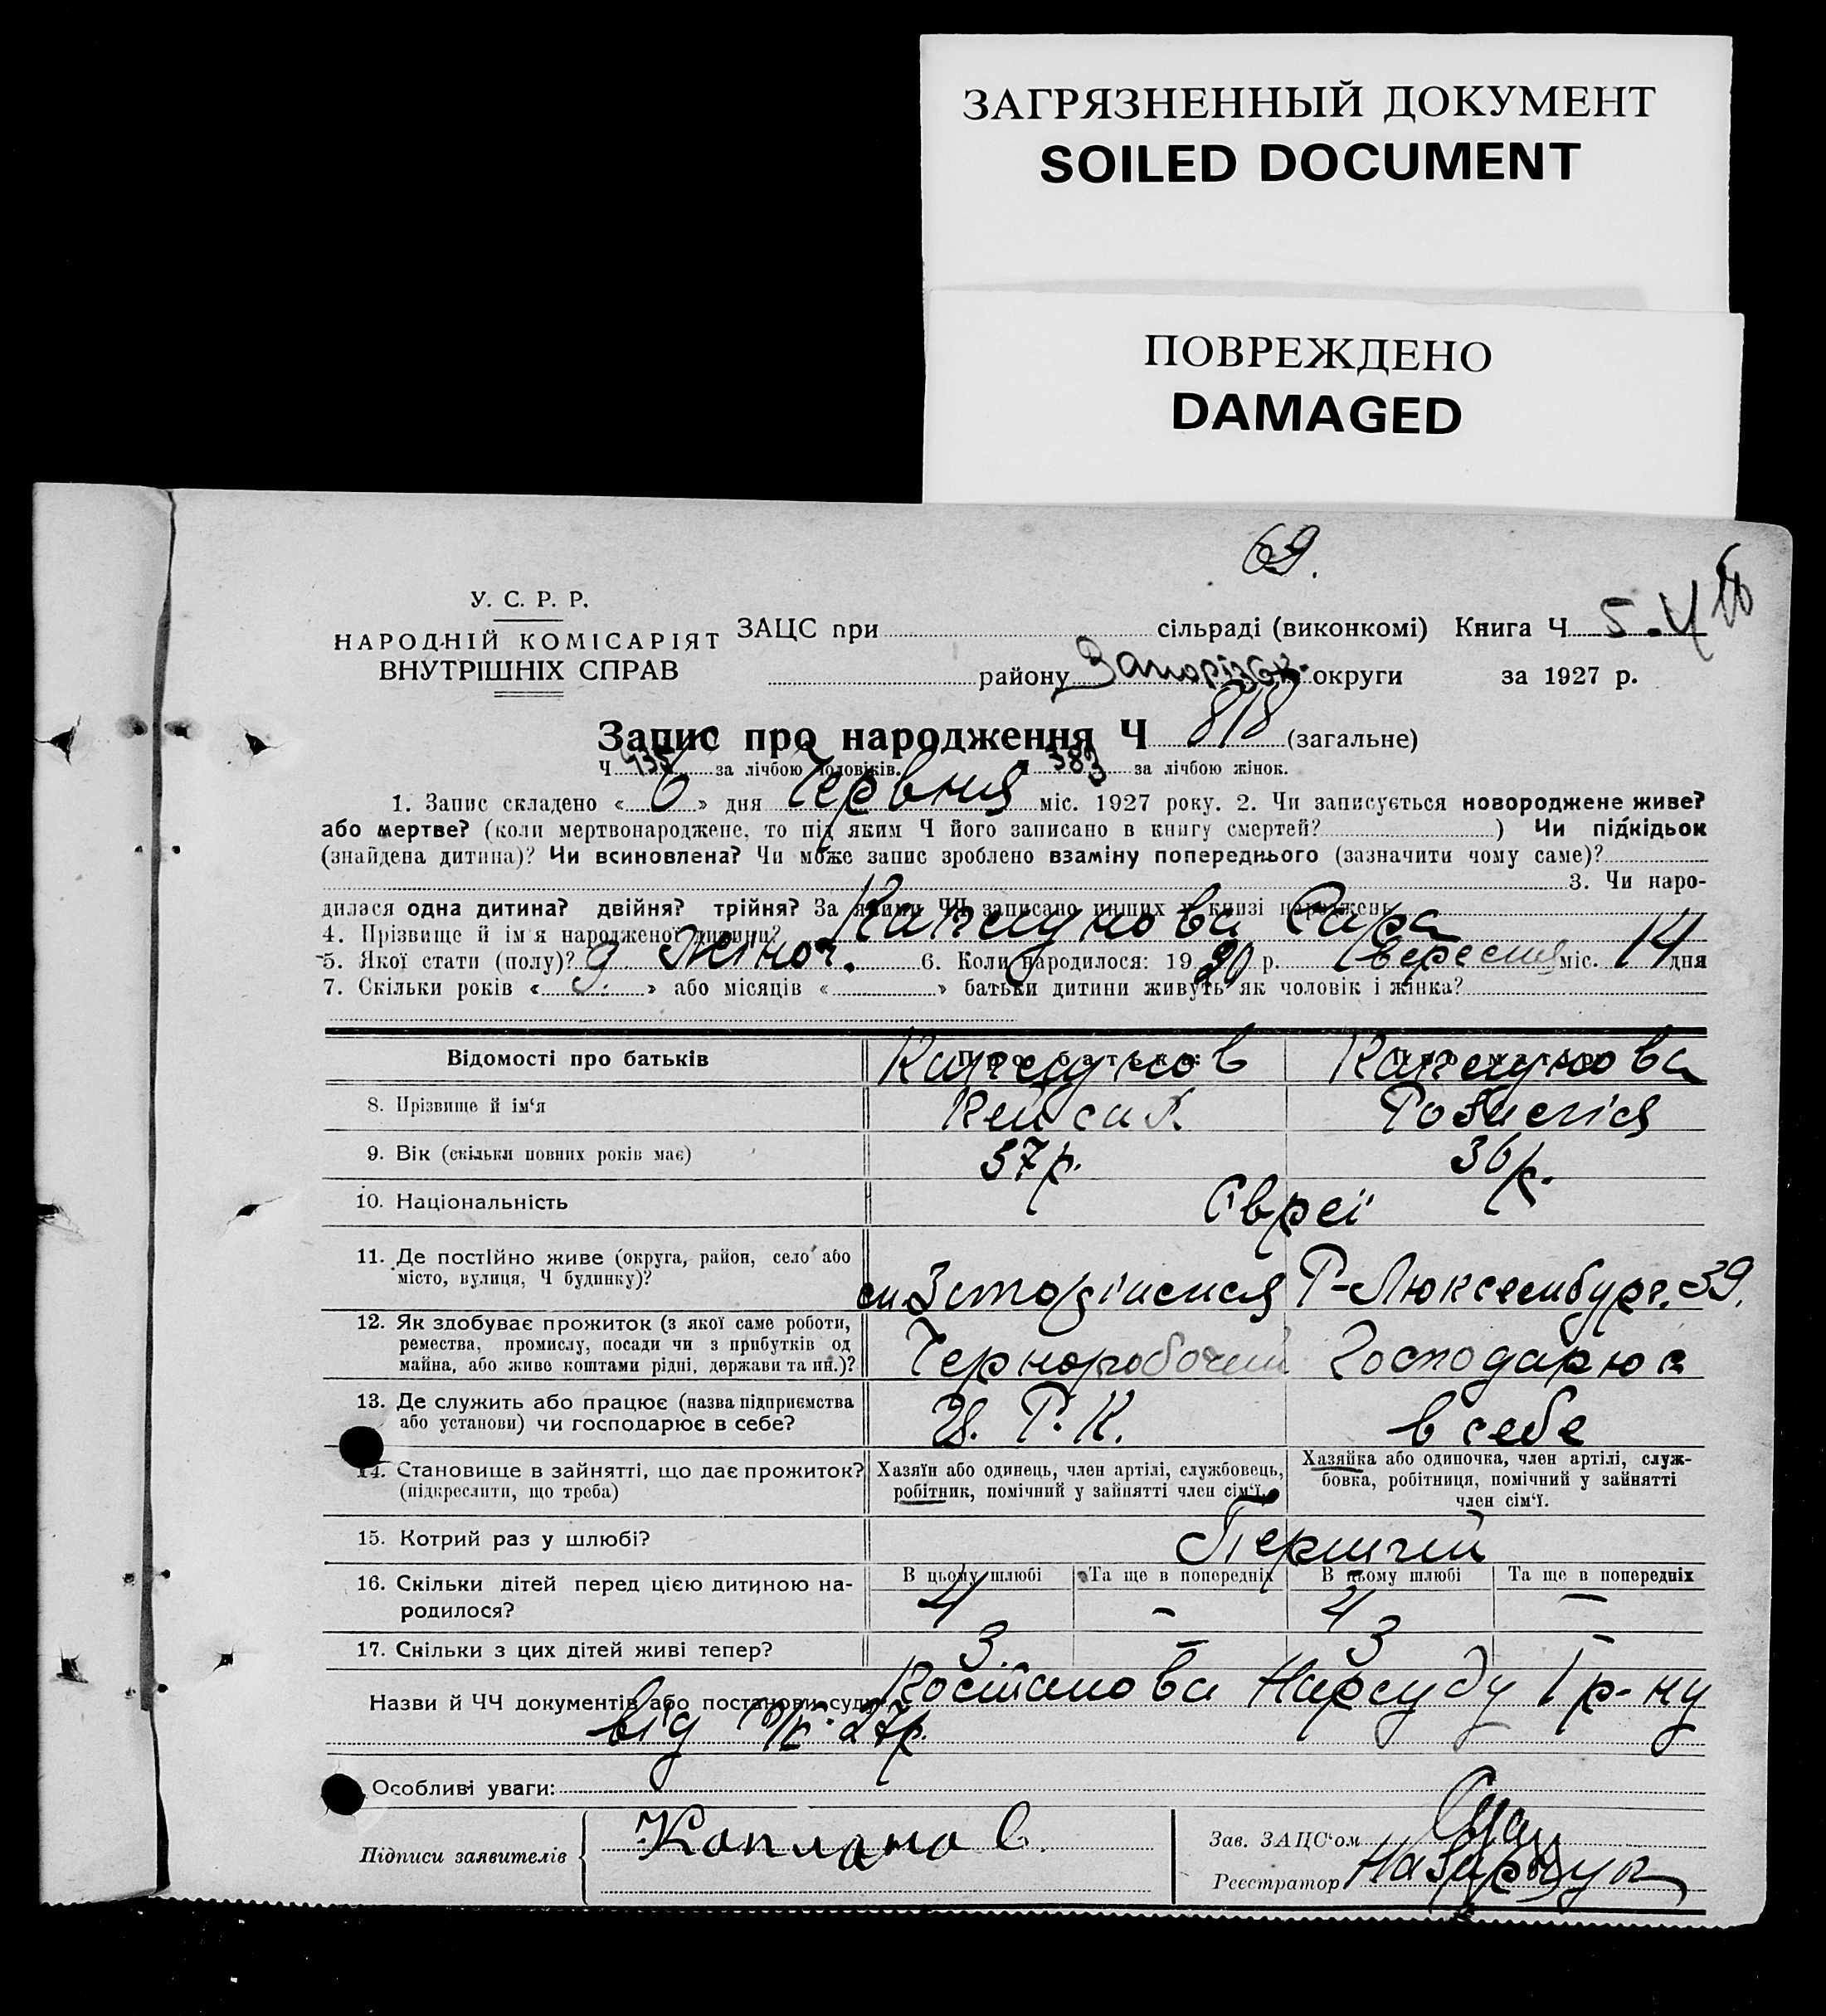 ЗАГРЯЗНЕННЫЙ ДОКУМЕНТ
SOILED DOCUMENT
ПОВРЕЖДЕНО
DAMAGED
69.
У. С. Р. Р.
НАРОДНІЙ КОМІСАРІЯТ
ВНУТРІШНІХ СПРАВ
ЗАЦС при сільраді (виконкомі) Книга Ч 5-
району Запорізьк. округи за 1927 р.
Запис про народження Ч 818 (загальне)
Ч 435 за лічбою чоловіків. Ч 383 за лічбою жінок.
1. Запис складено « 6 » дня Червня міс. 1927 року. 2. Чи записується новороджене живе?
або мертве? (коли мертвонароджене, то під яким Ч його записано в книгу смертей? ) Чи підкідьок
(знайдена дитина)? Чи всиновлена? Чи може запис зроблено взаміну попереднього (зазначити чому саме)?
3. Чи наро-
дилася одна дитина? двійня? трійня? За якими ЧЧ записано инших у книзі народжень
4. Прізвище й ім'я народженої дитини? Сара
5. Якої стати (полу)? Жіноч. 6. Коли народилося: 19 20 р. вересня міс. 14 дня
7. Скільки років « 9. » або місяців « » батьки дитини живуть як чоловік і жінка?
Відомості про батьків Про батька: Про матір:
8. Прізвище й ім'я
9. Вік (скільки повних років має) 37р. 36р.
10. Національність Євреї
11. Де постійно живе (округа, район, село або
місто, вулиця, Ч будинку)?
Р-Люксембург. 39.
12. Як здобуває прожиток (з якої саме роботи,
ремества, промислу, посади чи з прибутків од
майна, або живе коштами рідні, держави та ин.)?
Чорноробочий Господарює
13. Де служить або працює (назва підприємства
або установи) чи господарює в себе?
Ц. Р. К. в себе
14. Становище в зайнятті, що дає прожиток?
(підкреслити, що треба)
Хазяїн або одинець, член артілі, службовець,
робітник, помічний у зайнятті член сім'ї.
Хазяйка або одиночка, член артілі, служ-
бовка, робітниця, помічний у зайнятті
член сім'ї.
15. Котрий раз у шлюбі? Перший
16. Скільки дітей перед цією дитиною на-
родилося?
В цьому шлюбі Та ще в попередніх В цьому шлюбі Та ще в попередніх
4 – 4 –
17. Скільки з цих дітей живі тепер? 3. – 3 –
Назви й ЧЧ документів або постанови суду: Постанова Нарсуду 1 р-ну
від 27р.
Особливі уваги:
Підписи заявителів
Зав. ЗАЦС'ом
Реєстратор